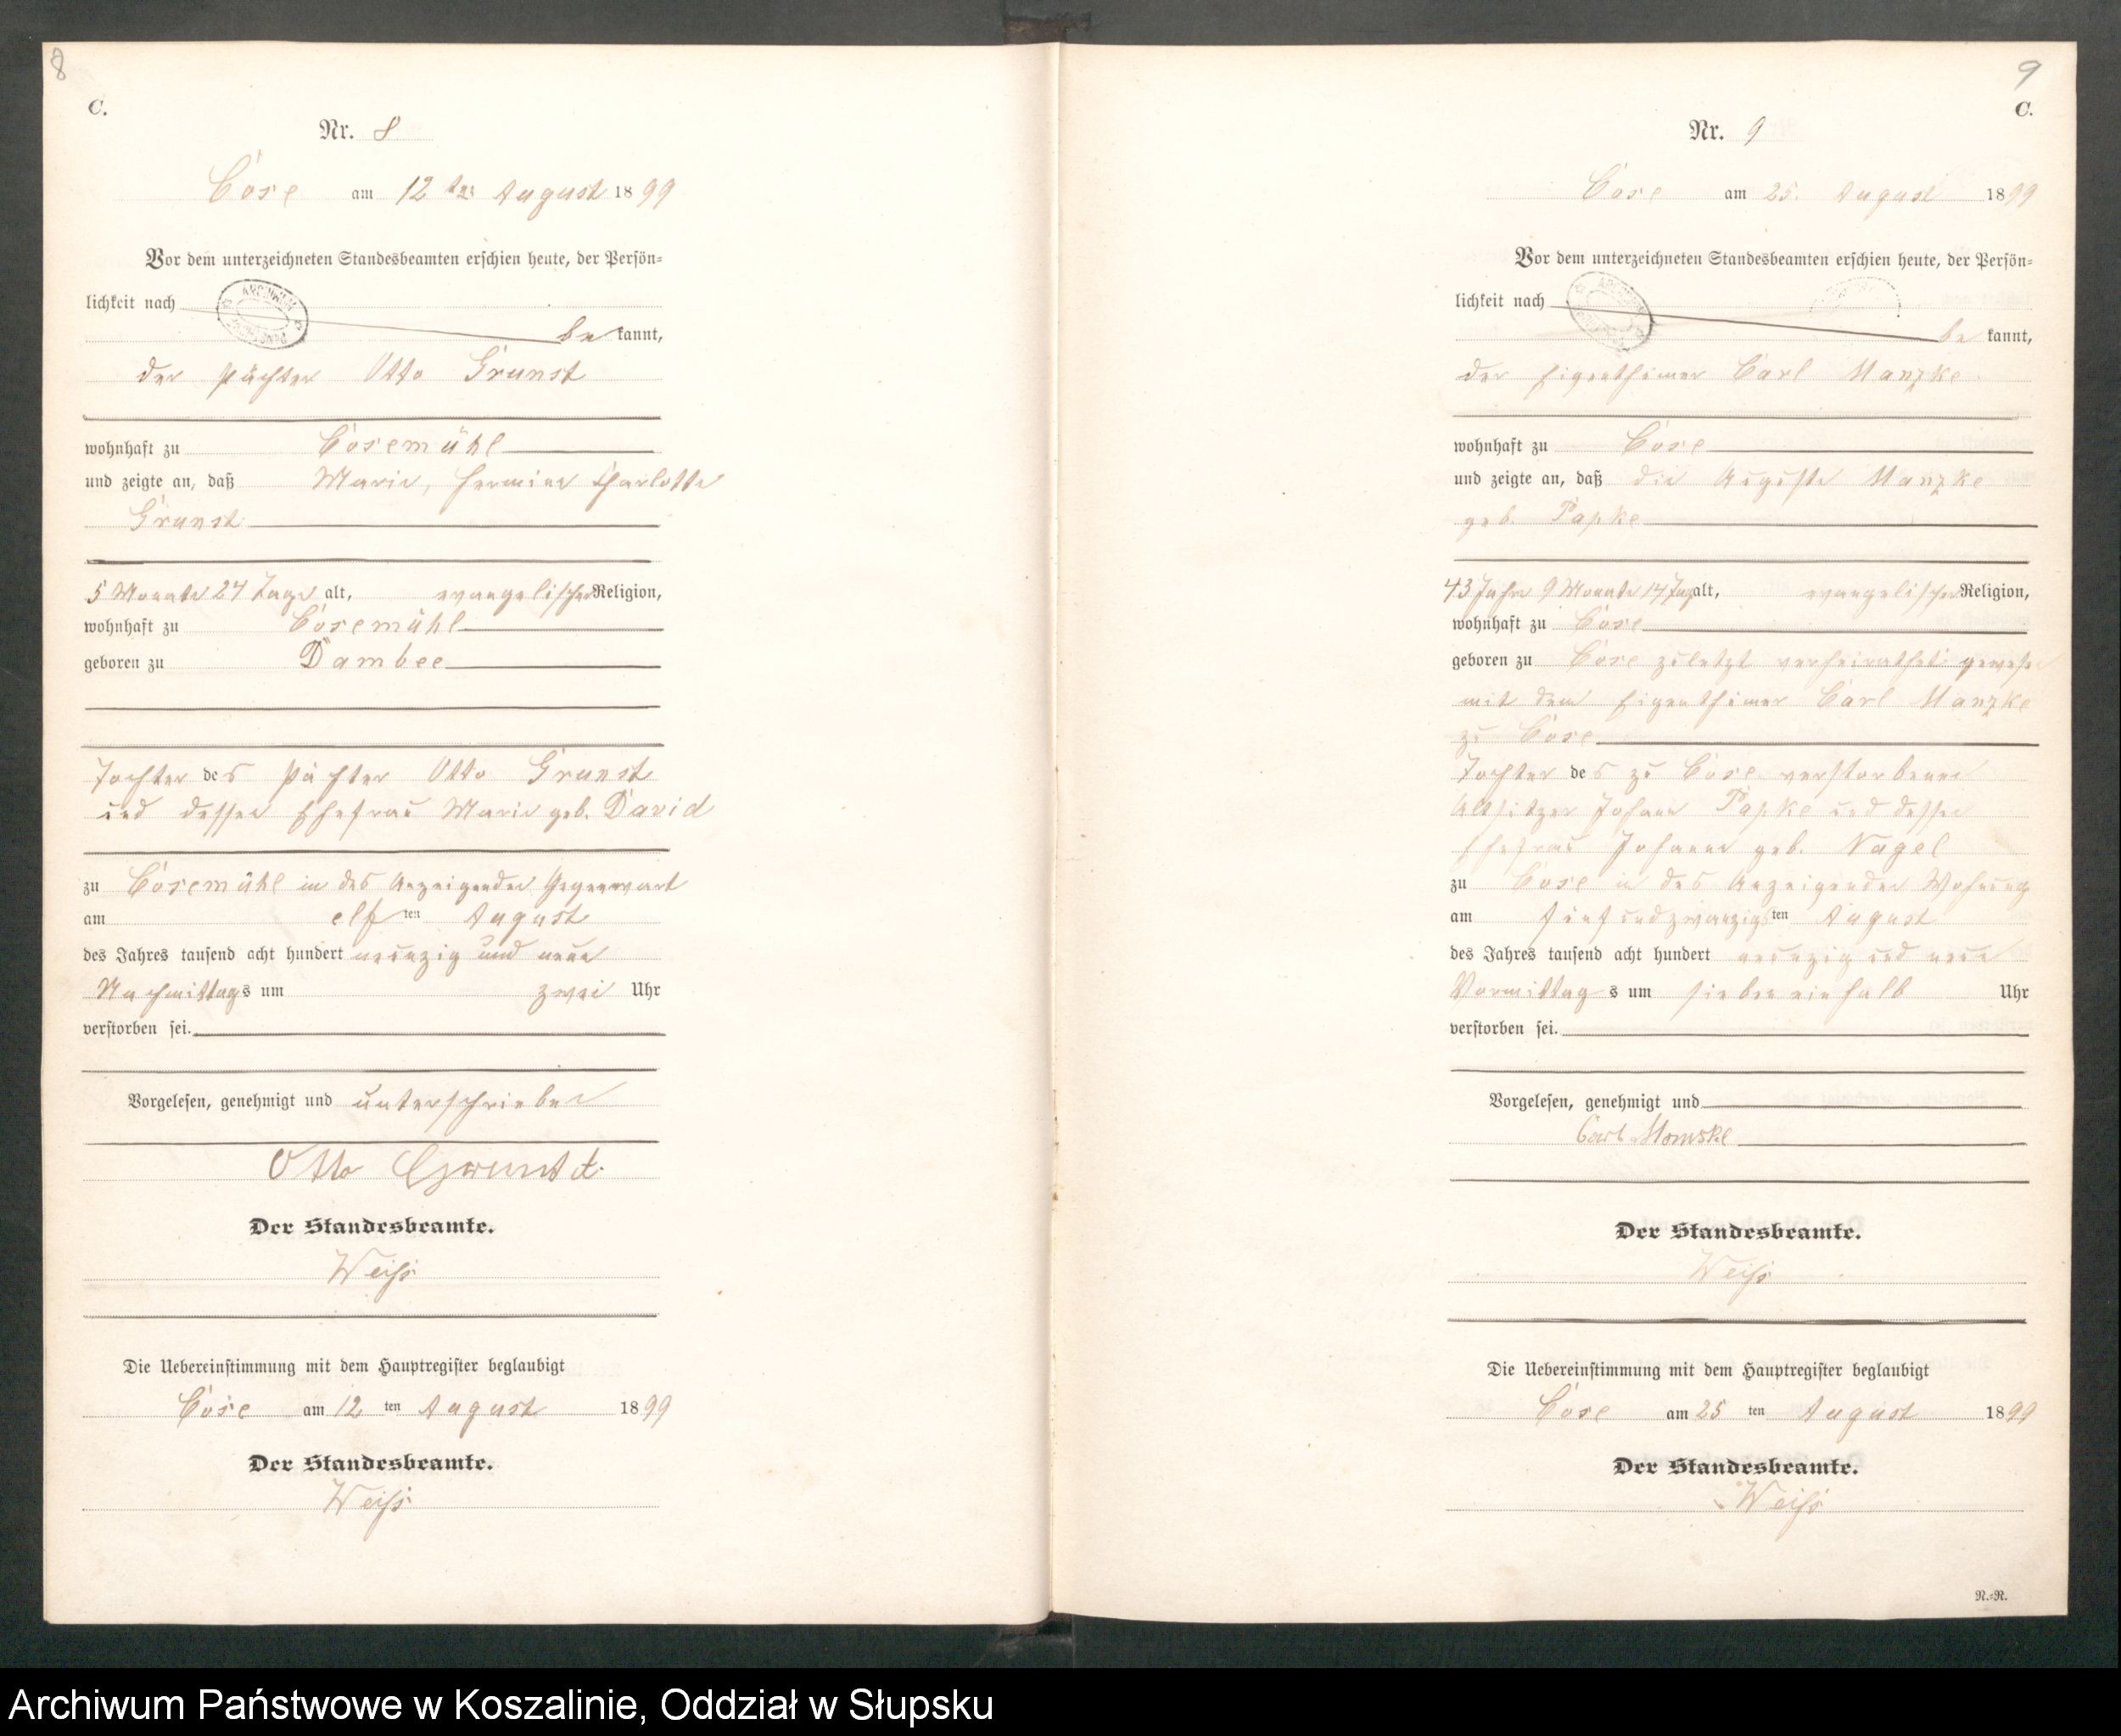 8
C.
Nr. 8
Cose am 12ten August 1899
Vor dem unterzeichneten Standesbeamten erschien heute, der Persön-
lichkeit nach
be kannt,
der Pächter Otto Grunst
wohnhaft zu Cosemühl
und zeigte an, daß Marie, Hermine Charlotte
Grunst
5 Monate 24 Tage alt, evangelischer Religion,
wohnhaft zu Cosemühl
geboren zu Dambee
Tochter des Pächter Otto Grunst
und dessen Ehefrau Marie geb. David
zu Cosemühl in des Anzeigenden Gegenwart
am elften August
des Jahres tausend acht hundert neunzig und neun
Nachmittags um zwei Uhr
verstorben sei.
Vorgelesen, genehmigt und unterschrieben
Otto Grunst
Der Standesbeamte.
Weiß
Die Uebereinstimmung mit dem Hauptregister beglaubigt
Cose am 12 ten August 1899
Der Standesbeamte.
Weiß
9
C.
Nr. 9
Cose am 25. August 1899
Vor dem unterzeichneten Standesbeamten erschien heute, der Persön-
lichkeit nach
be kannt,
der Eigenthümer Carl Manzke
wohnhaft zu Cose
und zeigte an, daß die Auguste Manzke
geb. Papke
43 Jahre 9 Monate 14 Tage alt, evangelischer Religion,
wohnhaft zu Cose
geboren zu Cose zuletzt verheirathet gewesen
mit dem Eigenthümer Carl Manzke
zu Cose
Tochter des zu Cose verstorbenen
Altsitzer Johann Papke und dessen
Ehefrau Johanne geb. Nagel
zu Cose in des Anzeigenden Wohnung
am fünfundzwanzigsten August
des Jahres tausend acht hundert neunzig und neun
Vormittags um sieben einhalb Uhr
verstorben sei.
Vorgelesen, genehmigt und
Carl Manske
Der Standesbeamte.
Weiß
Die Uebereinstimmung mit dem Hauptregister beglaubigt
Cose am 25 ten August 1899
Der Standesbeamte.
Weiß
N.=R.
Archiwum Państwowe w Koszalinie, Oddział w Słupsku